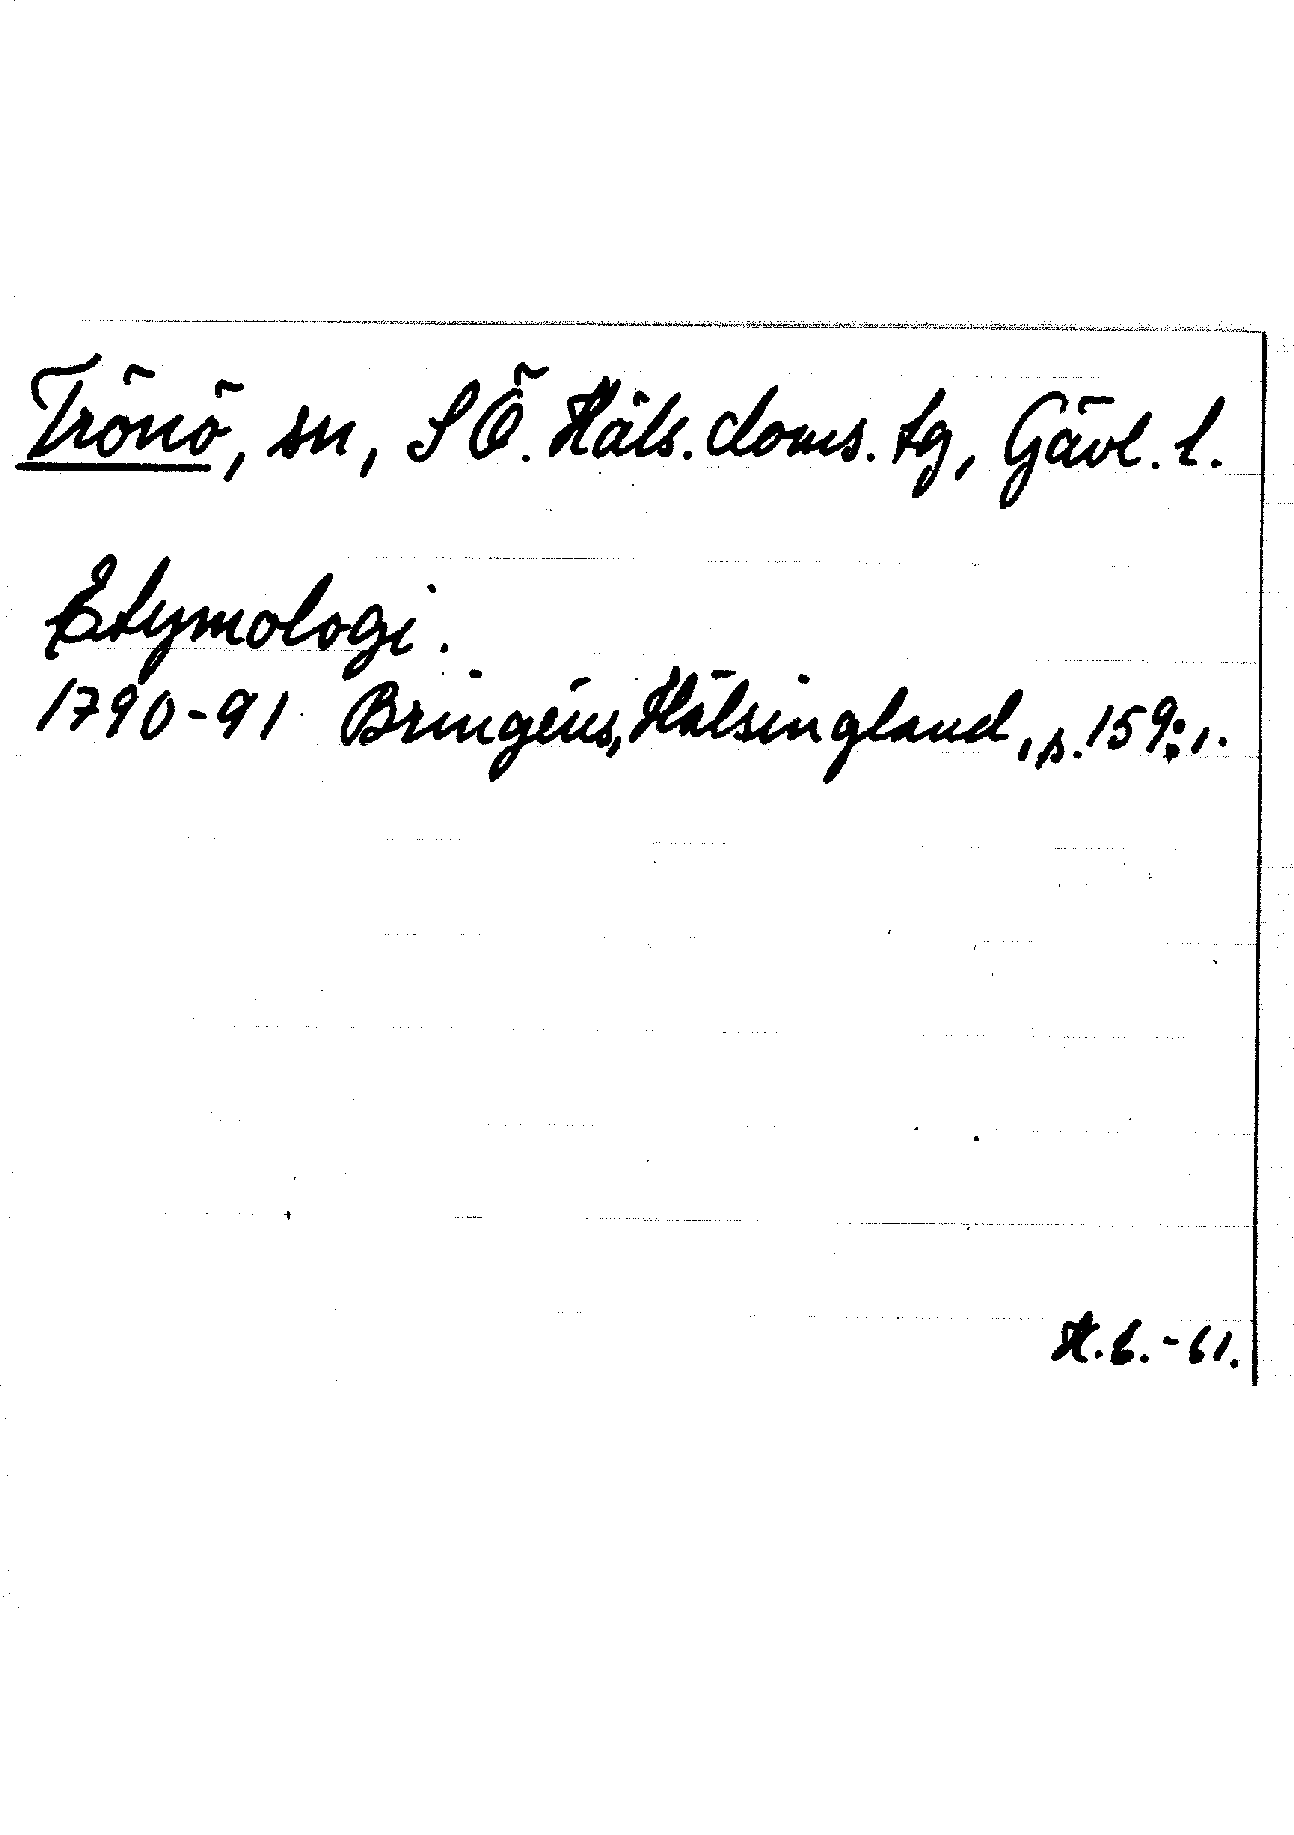 Trönö, sn, SÖ. Häls. doms. tg, Gävl. l.
Etymologi.
1790-91 Bringéus, Hälsingland, s. 159:1.
H.b.-61.